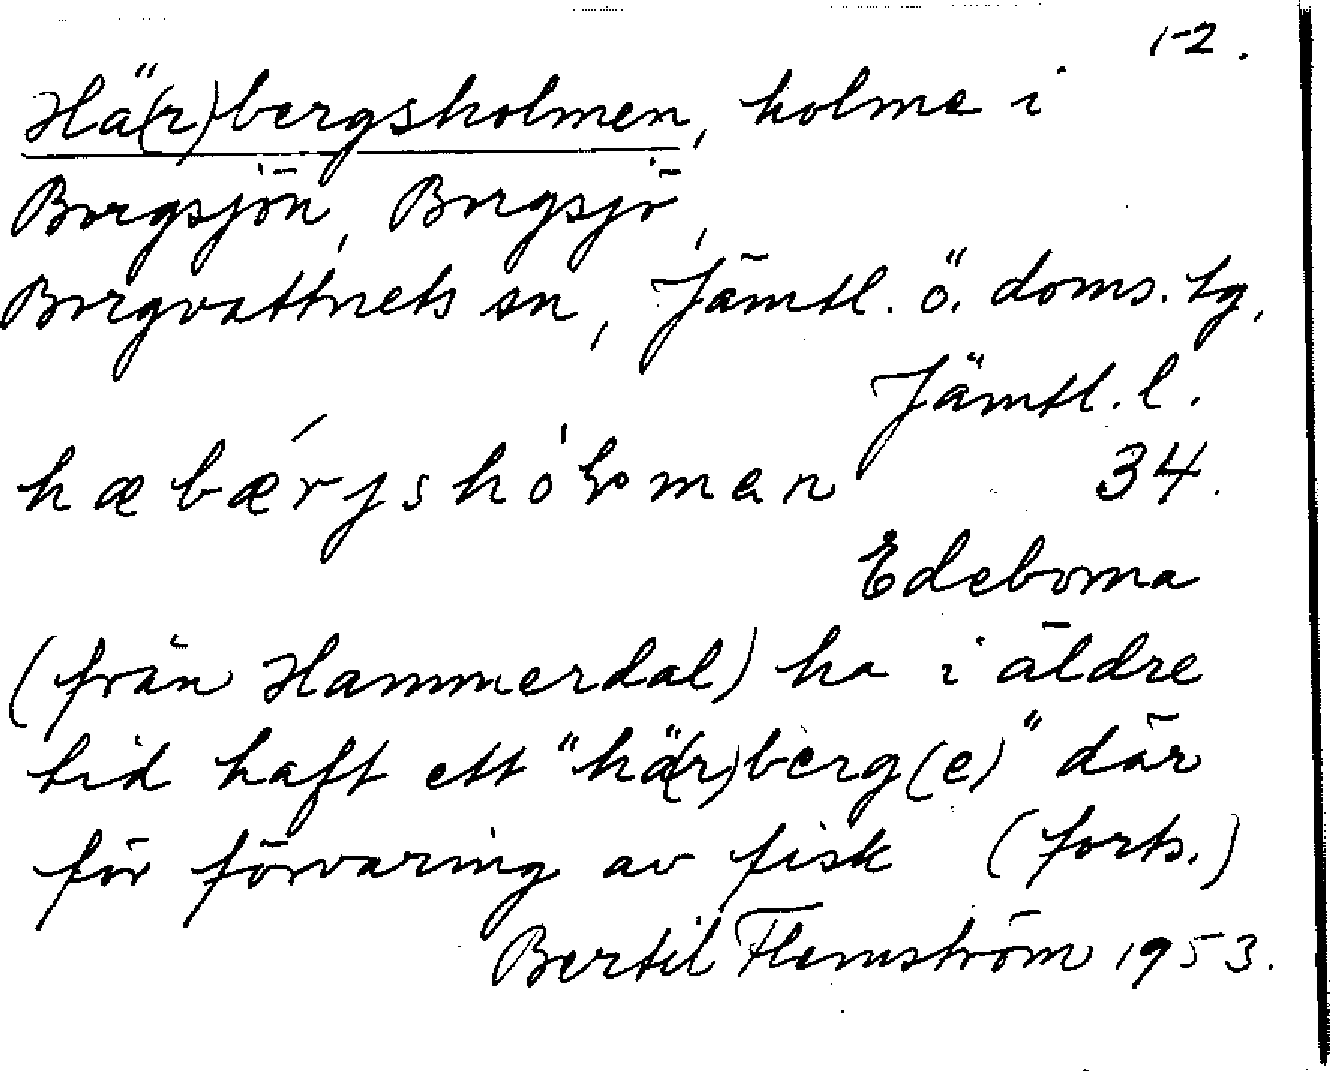 1-2.
Hä(r)bergsholmen, holme i
Borgsjön, Borgsjö,
Borgvattnets sn, Jämtl. ö. doms. tg,
Jämtl. l.
34.
Edeborna
(från Hammerdal) ha i äldre
tid haft ett "hä(r)berg(e)" där
för förvaring av fisk (forts.)
Bertil Flemström 1953.